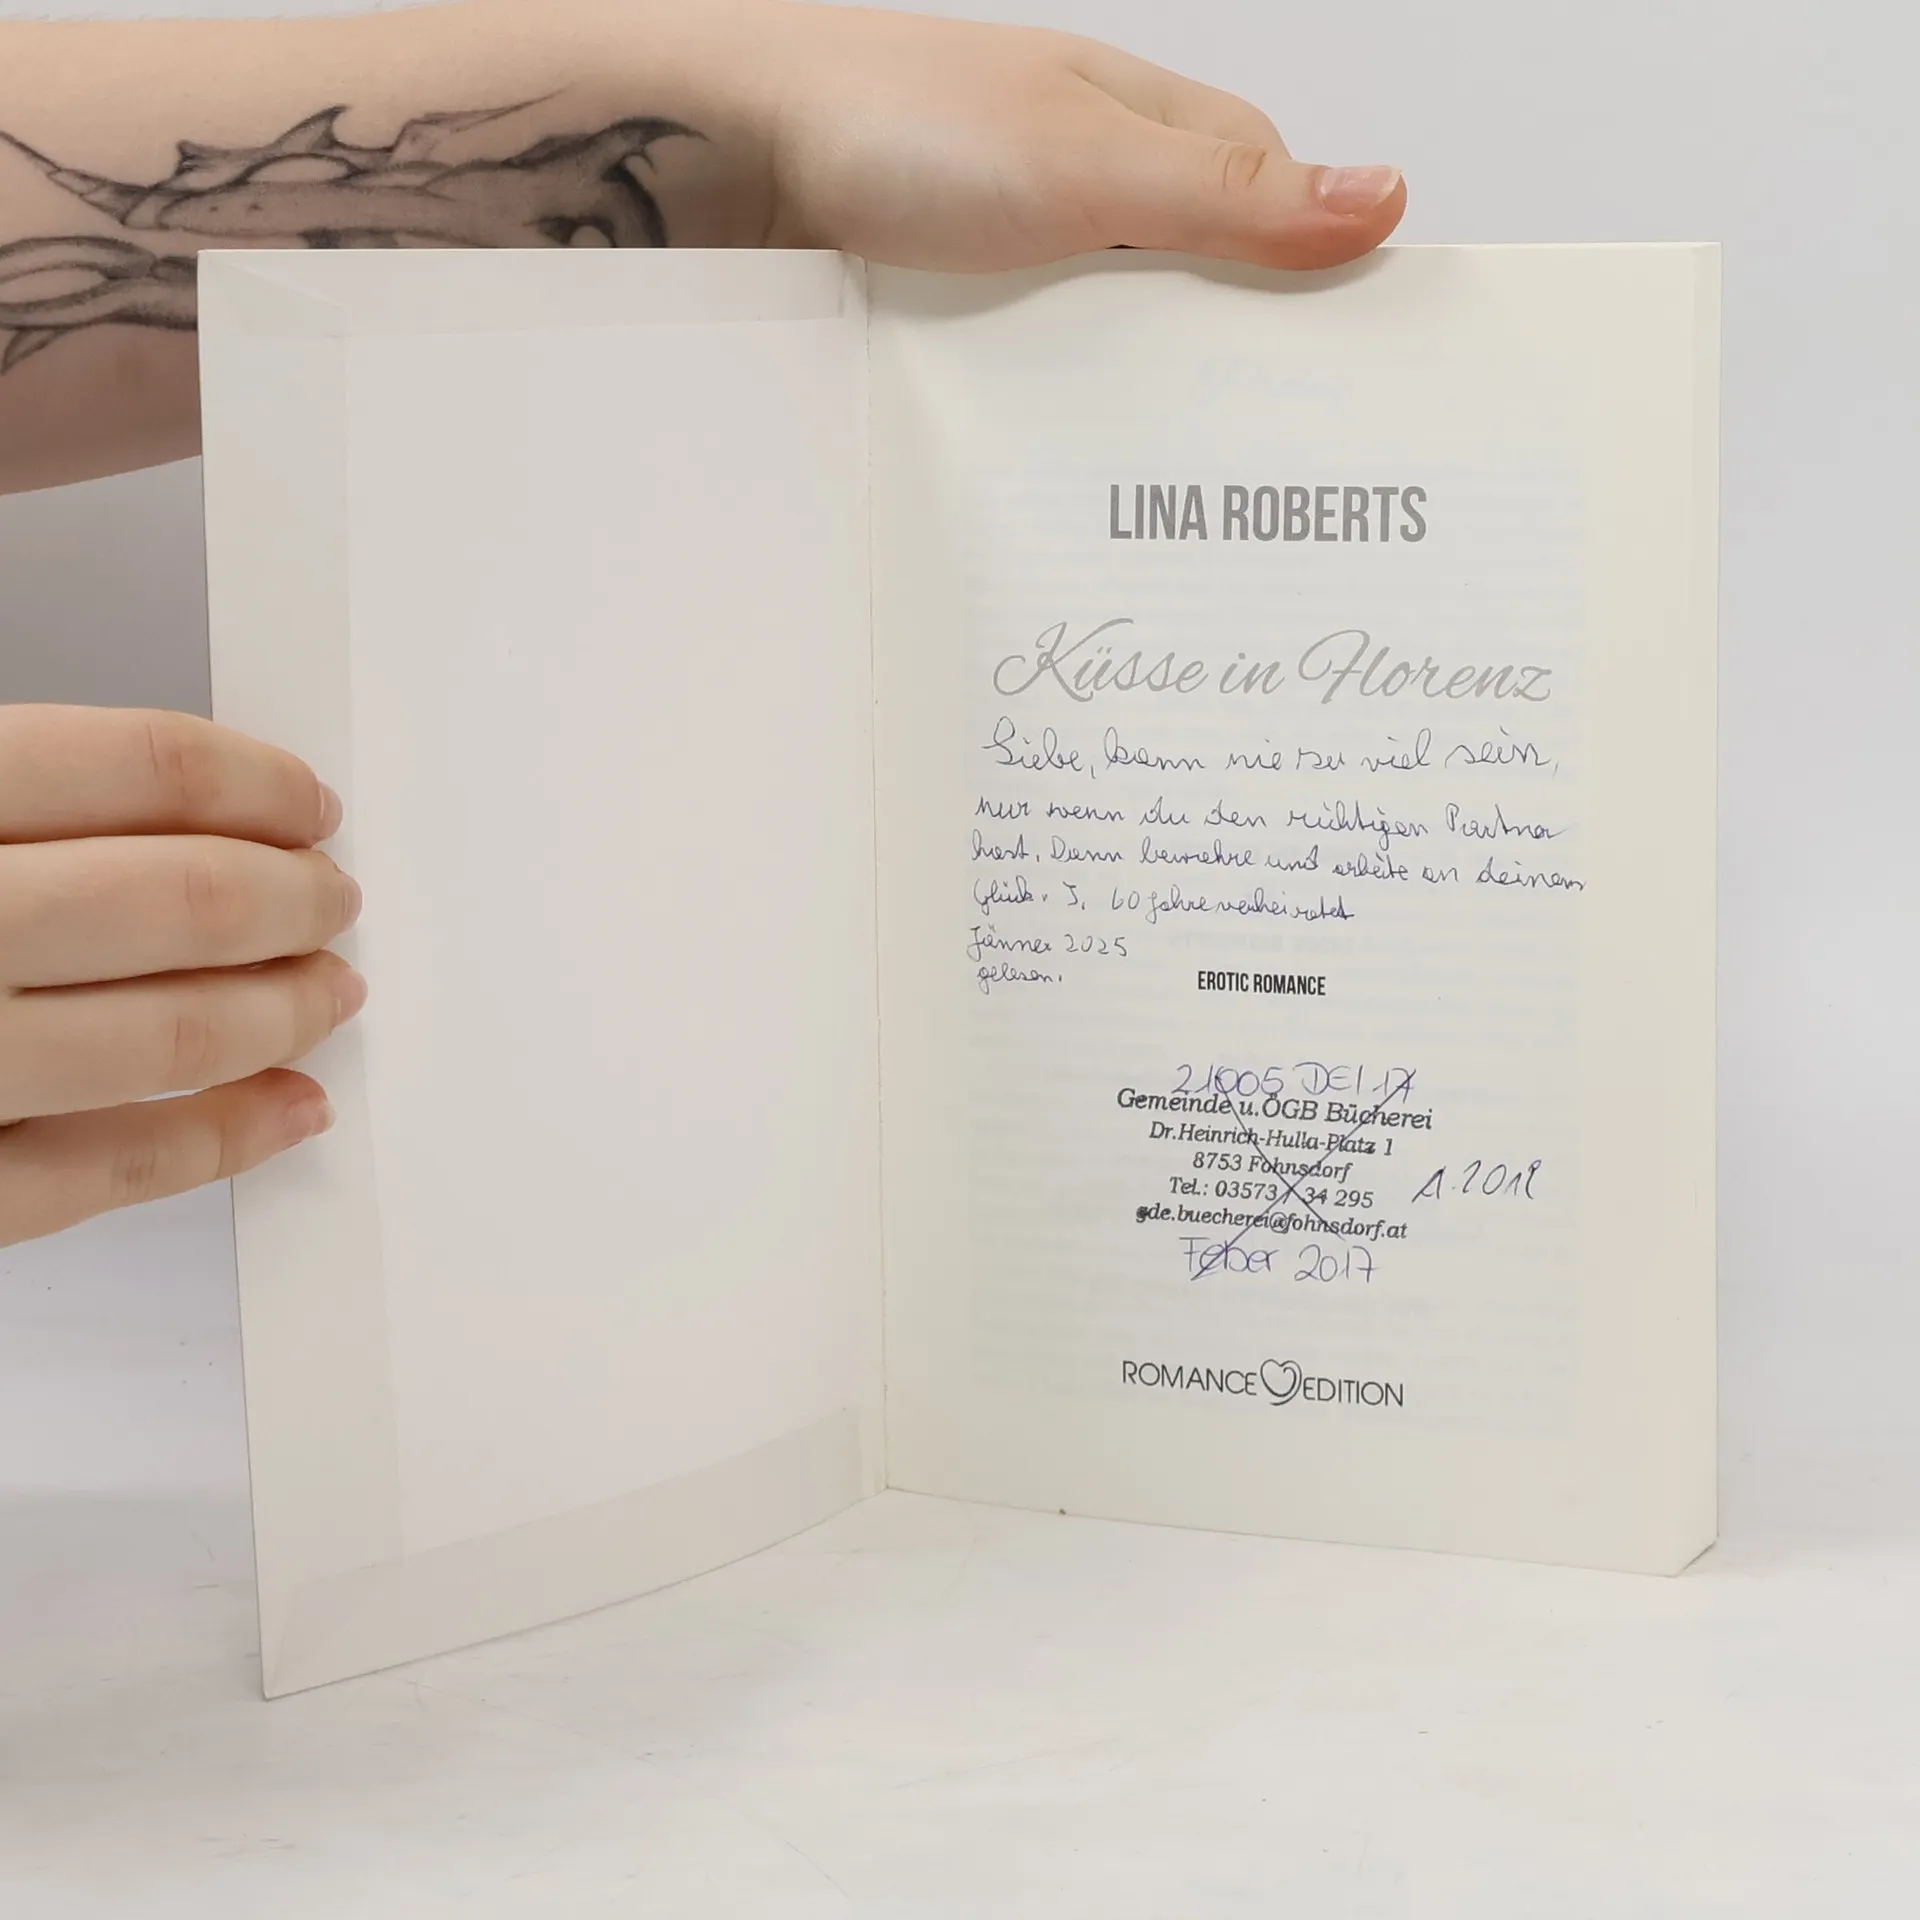 LINA ROBERTS
Küsse in Florenz
Liebe, kann nie zu viel sein,
nur wenn du den richtigen Partner
hast. Dann bewahre und arbeite an deinem
Glück. J. 60 Jahre verheiratet
Jänner 2025
gelesen.
EROTIC ROMANCE
21005 DE1 17
Gemeinde u.ÖGB Bücherei
Dr.Heinrich-Hulla-Platz 1
8753 Fohnsdorf
Tel.: 03573 / 34 295
A. 2018
gde.buecherei@fohnsdorf.at
Feber 2017
ROMANCE EDITION